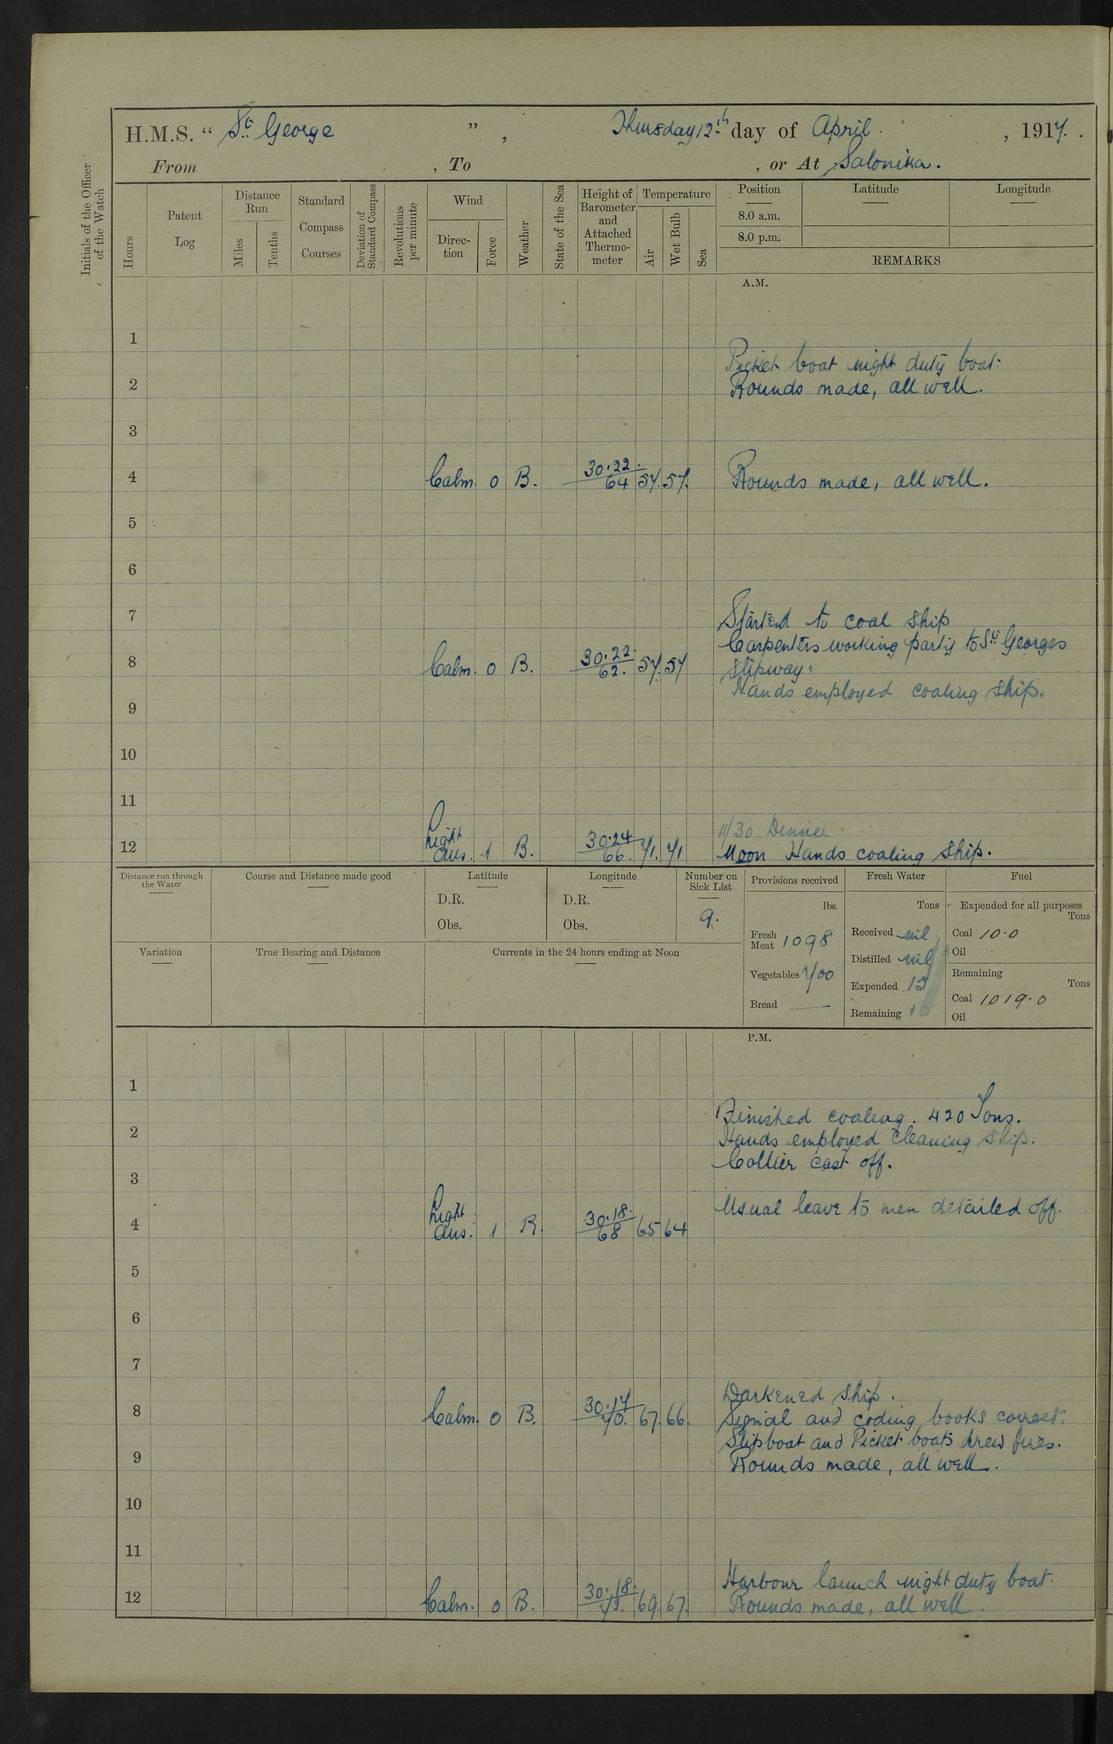 H.M.S. “ St. George ” , Thursday 12th day of April , 1917.
From , To , or At Salonika.
Initials of the Officer of the Watch
Hours
Patent Log
Distance Run
Miles
Tenths
Standard Compass Courses
Deviation of Standard Compass
Revolutions per minute
Wind
Direction
Force
Weather
State of the Sea
Height of Barometer and Attached Thermometer
Temperature
Air
Wet Bulb
Sea
Position
8.0 a.m.
8.0 p.m.
Latitude
Longitude
REMARKS
A.M.
1
Picket boat night duty boat.
2 Rounds made, all well.
3
4 Calm. 0 B. 30.22 64 57. 57. Rounds made, all well.
5
6
7 Started to coal ship
Carpenters working party to St Georges
8 Calm. 0 B. 30.22 62. 57. 57 slipway.
Hands employed coaling ship.
9
10
11
11/30 Dinner.
12 Light airs. 1 B. 30.24 66. 71. 71 Noon Hands coaling ship.
Distance run through the Water
Course and Distance made good
Latitude
D.R.
Obs.
Longitude
D.R.
Obs.
Number on Sick List
9.
Variation
True Bearing and Distance
Currents in the 24 hours ending at Noon
Provisions received
lbs.
Fresh Meat 1098
Vegetables 700
Bread —
Fresh Water
Tons
Received nil
Distilled nil
Expended 15
Remaining
Fuel
Expended for all purposes
Tons
Coal 10.0
Oil
Remaining
Tons
Coal 1019.0
Oil
P.M.
1
Finished coaling. 420 Tons.
2 Hands employed cleaning ship.
Collier cast off.
3
Usual leave to men detailed off.
4 Light airs. 1 B. 30.18. 68 65 64
5
6
7
Darkened ship.
8 Calm. 0 B. 30.17 70. 67. 66. Signal and coding books correct.
Slipboat and Picket boats drew fires.
9 Rounds made, all well.
10
11
Harbour launch night duty boat.
12 Calm. 0 B. 30.18. 69. 67. Rounds made, all well.